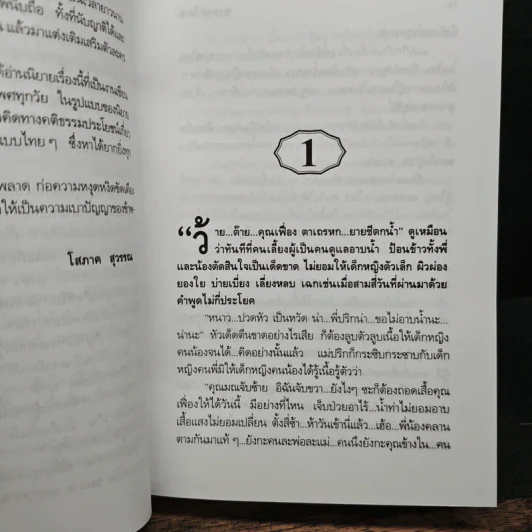 พนับถือ ทั้งที่นับญาติได้และ
แล้วมาแต่งเติมเสริมตัวละคร
ได้อ่านนิยายเรื่องนี้ที่เป็นงานเขียน
เพศทุกวัย ในรูปแบบของนิยาย
คิดทางคติธรรมประโยชน์เกี่ยว
แบบไทยๆ ซึ่งหาได้ยากยิ่งทุก
พลาด ก่อความหงุดหงิดขัดเคือง
ให้เป็นความเบาปัญญาของข้าพ
โสภาค สุวรรณ
1
“ว้าย...ต๊าย...คุณเฟื่อง ตาเถรหก...ยายชีตกน้ำ” ดูเหมือน
ว่าทันทีที่คนเลี้ยงผู้เป็นคนดูแลอาบน้ำ ป้อนข้าวทั้งพี่
และน้องตัดสินใจเป็นเด็ดขาด ไม่ยอมให้เด็กหญิงตัวเล็ก ผิวผ่อง
ยองใย บ่ายเบี่ยง เลี่ยงหลบ เฉกเช่นเมื่อสามสี่วันที่ผ่านมาด้วย
คำพูดไม่กี่ประโยค
“หนาว...ปวดหัว เป็นหวัด น่า...พี่ปริกน่า...ขอไม่อาบน้ำนะ...
น่านะ” หัวเด็ดตีนขาดอย่างไรเสีย ก็ต้องลูบตัวลูบเนื้อให้เด็กหญิง
คนน้องจนได้...คิดอย่างนั้นแล้ว แม่ปริกก็กระซิบกระซาบกับเด็ก
หญิงคนพี่มิให้เด็กหญิงคนน้องได้รู้เนื้อรู้ตัวว่า
“คุณมณจับซ้าย อิฉันจับขวา...ยังไงๆ ซะก็ต้องถอดเสื้อคุณ
เฟื่องให้ได้วันนี้ มีอย่างที่ไหน เจ็บป่วยอาไร้...น้ำท่าไม่ยอมอาบ
เสื้อแสงไม่ยอมเปลี่ยน ตั้งสี่ซ้า...ห้าวันเข้านี่แล้ว...เฮ้อ...พี่น้องคลาน
ตามกันมาแท้ ๆ...ยังกะคนละพ่อละแม่...คนนึงยังกะคุณข้างใน...คน